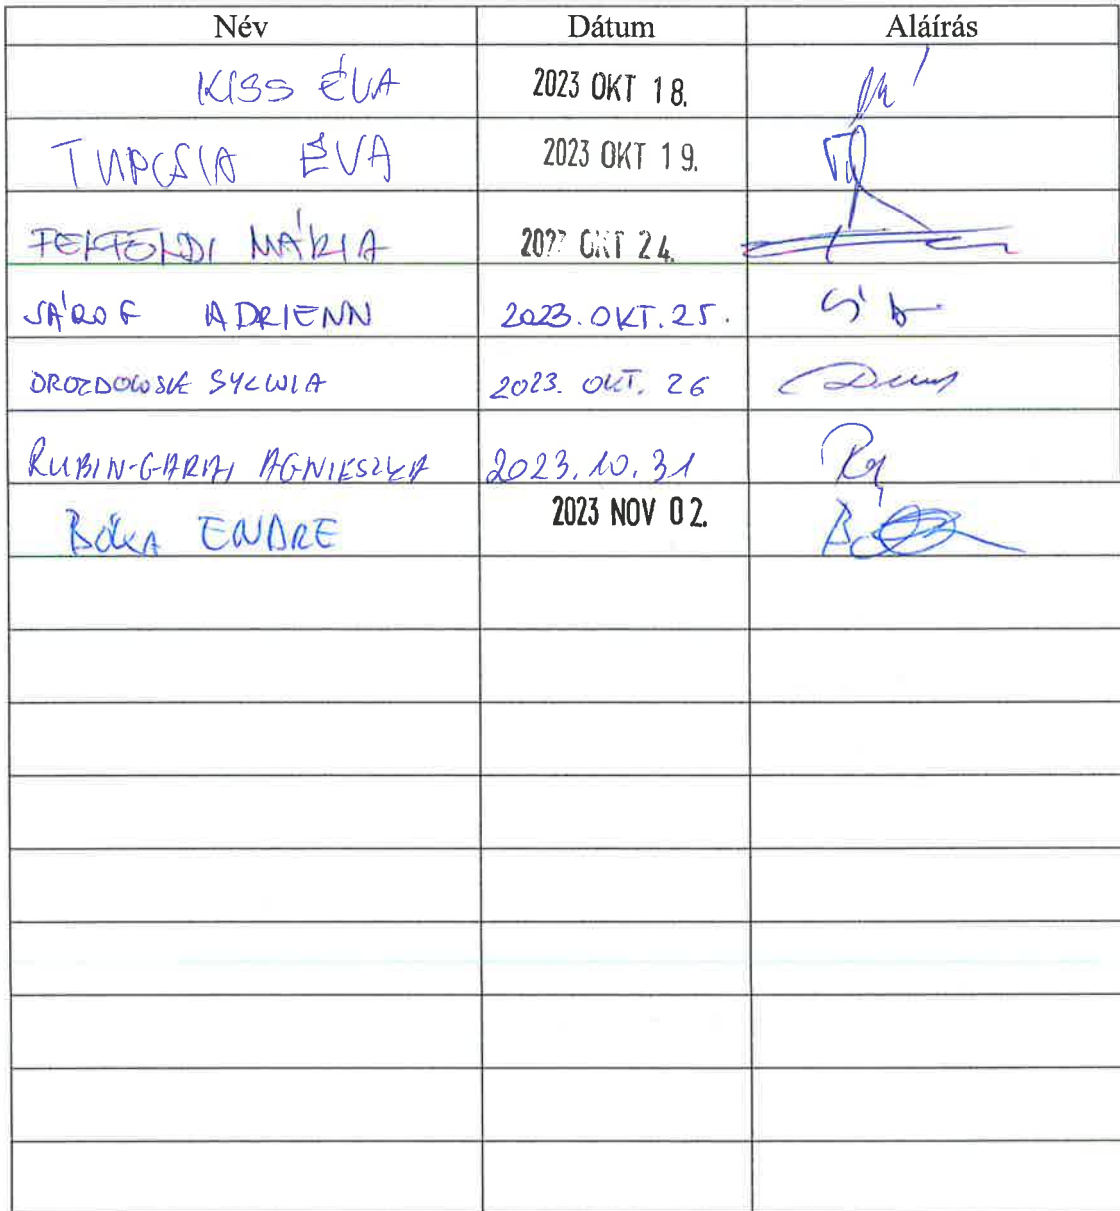 Név Dátum Aláírás
KISS ÉVA 2023 OKT 18.
TUPCSIA ÉVA 2023 OKT 19.
FELFÖLDI MÁRIA 2023 OKT 24.
SÁROF ADRIENN 2023. OKT. 25.
DROZDOWSKA SYLWIA 2023. OKT. 26
RUBIN-GARAI AGNIESZKA 2023.10.31
BÓKA ENDRE 2023 NOV 02.